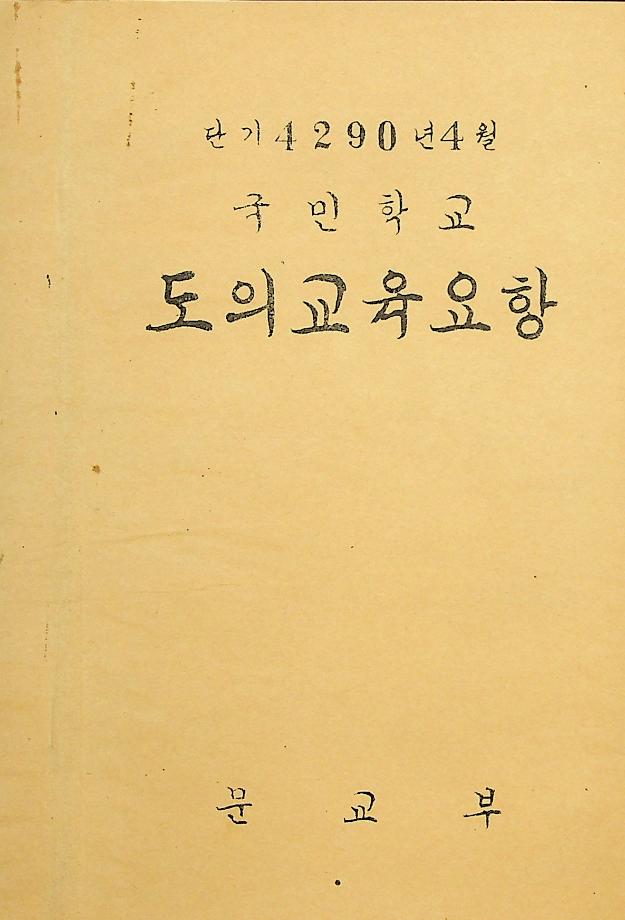 단기 4290년 4월
국민학교
도의교육요항
문교부